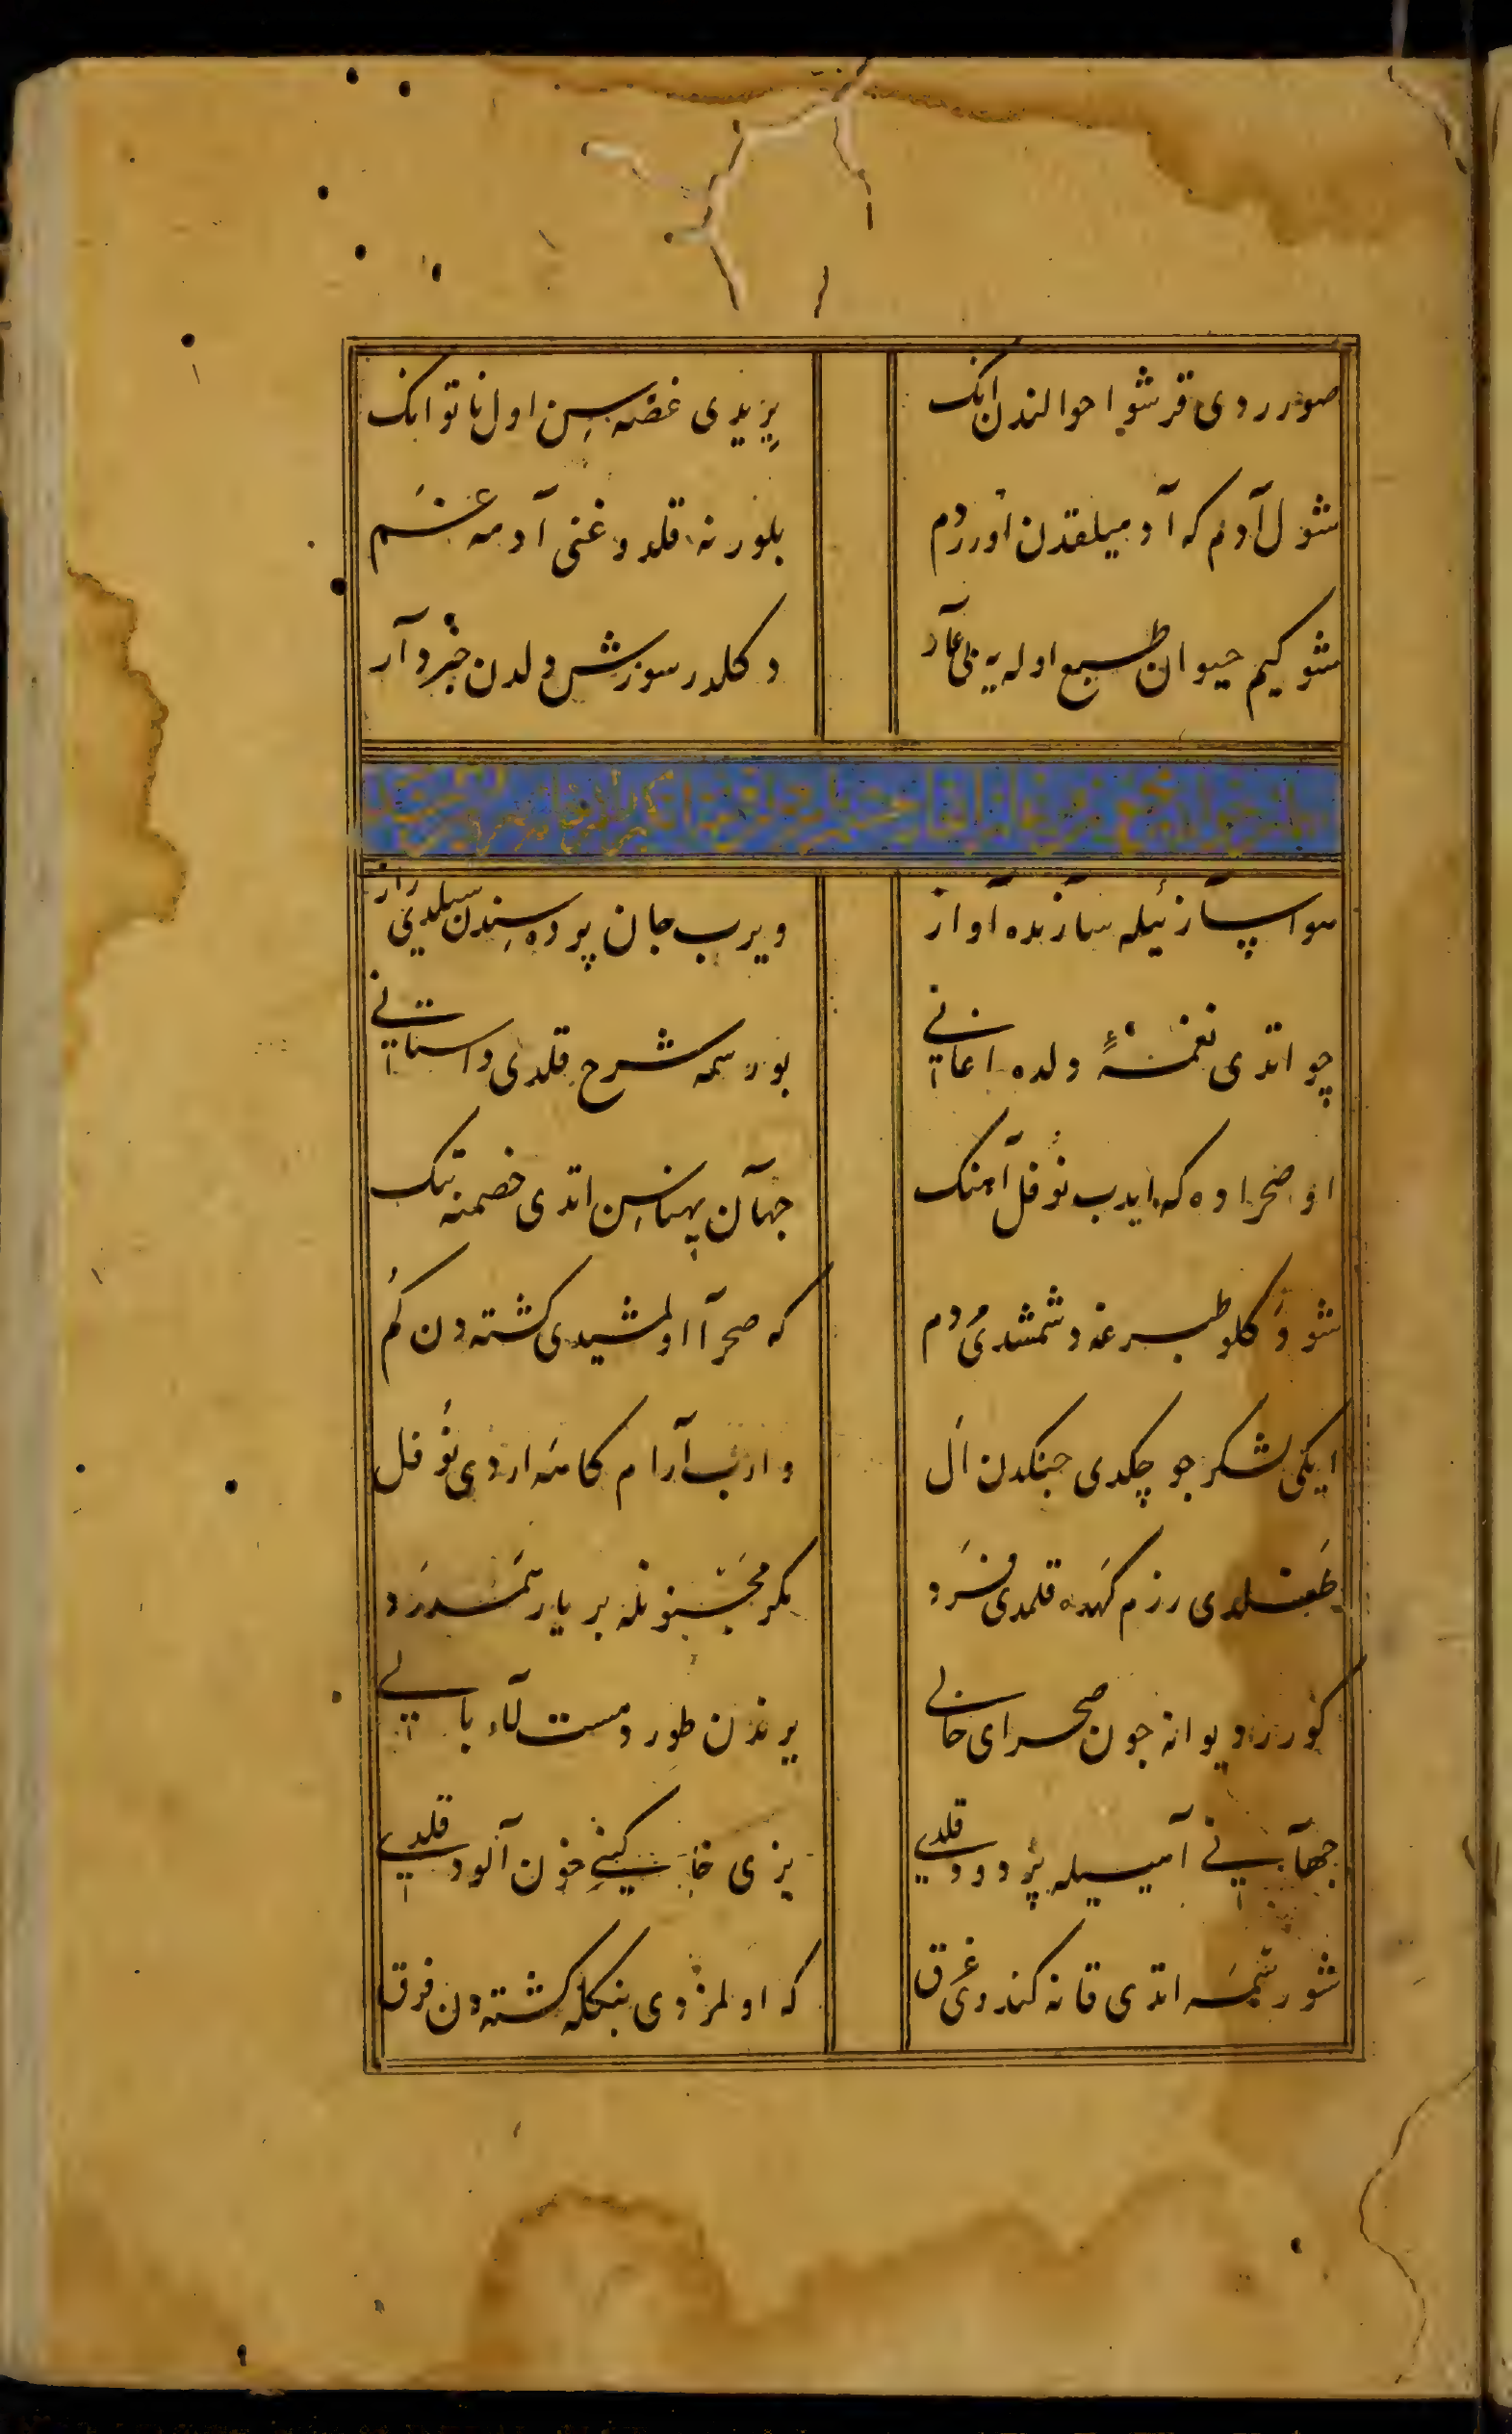 صورردی قرشو احوالندن انک
یزیدی غصه سن اول ناتوانک
شول آدم که آدمیلقدن اورر دم
بلور نه قلدوغنی آدمه غم
شو کیم حیوان طبع اوله یه نی عار
دکلدر سوزش دلدن خبردار
هوا سازئیله سازنده آواز
ویرب جان پرده سندن سیلدی راز
چو اتدی نغمۀ دلده اغانی
بو رسمه شرح قلدی داستانی
او صحراده که ایدب نوفل آهنک
جهان پهناسن اتدی خصمنه تنک
شو دکلو طبرغه دشمشدی دم
که صحرا اولمشیدی کشته دن کم
ایکی لشکر چو چکدی جنکدن ال
وارب آرام کاهنه اردی نوفل
طغلدی رزم کهده قلمدی فرد
مکر مجنونله بر یار همدرد
کورر دیوانه چون صحرای خالی
یرندن طوردی مست لاابالی
جهانی آهیله پر دود قلدی
یزی خاکینی خون آلود قلدی
شو رسمه اتدی قانه کندوی غرق
که اولمزدی بنکله کشته دن فرق